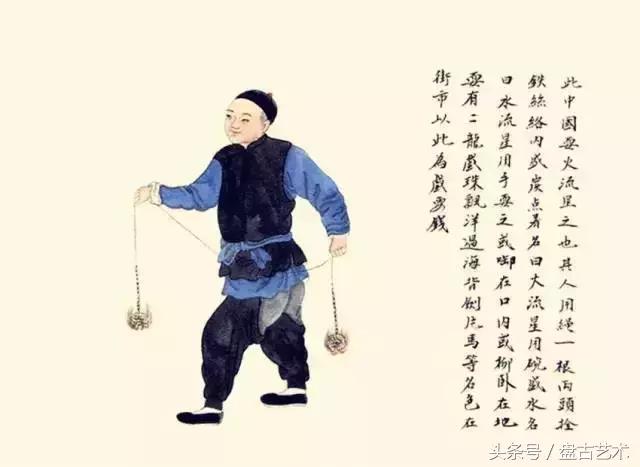 此中國耍火流星之也其人用繩一根兩頭拴
鉄絲絡内盛炭点着名曰大流星用碗盛水名
曰水流星用手耍之或啣在口内或仰卧在地
耍有二龍戲珠觀洋過海背劍片馬等名色在
街市以此為戲耍錢
头条号/盘古艺术